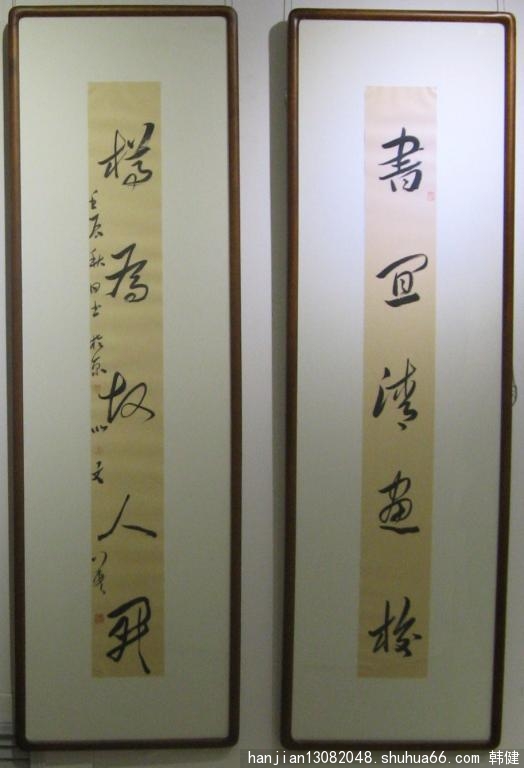 書宜清晝校
樽為故人開
壬辰秋日書於京
hanjian13082048.shuhua66.com 韩健